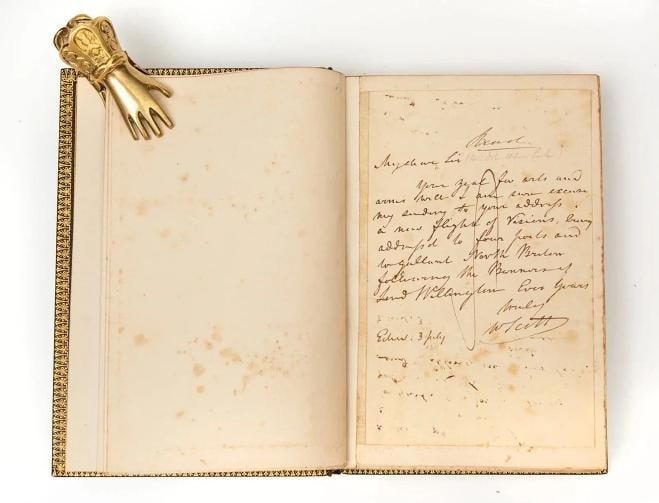 Read.
My dear Sir
Your zeal for arts and
arms will I am sure excuse
my sending to your address
a new flight of Visions, being
addressd to four parts and
to gallant North Briton
following the Banners of
Lord Wellington Ever Yours
truly
W Scott
Edinr. 3 July